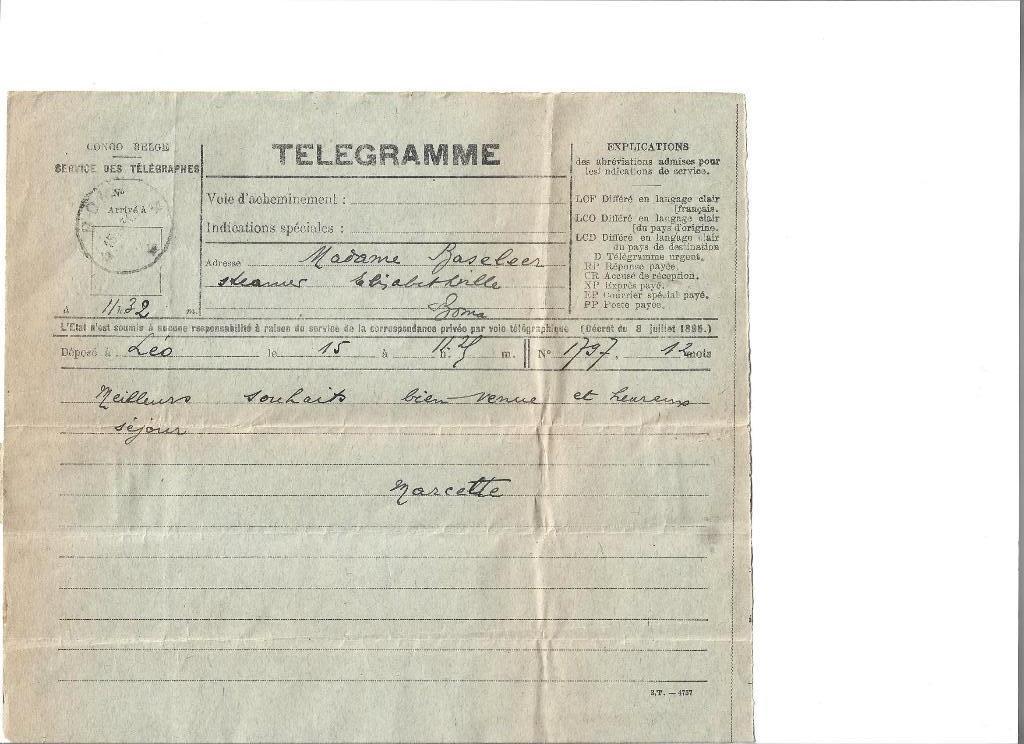 CONGO BELGE
SERVICE DES TÉLÉGRAPHES
No
Arrivé à
BOMA
à 11h32 m.
TELEGRAMME
Voie d'acheminement :
Indications spéciales :
Adresse Madame Baseleer
steamer Elisabethville
Boma
EXPLICATIONS
des abréviations admises pour
les indications de service.
LCF Différé en langage clair
[français.
LCO Différé en langage clair
[du pays d'origine.
LCD Différé en langage clair
du pays de destination
D Télégramme urgent.
RP Réponse payée.
CR Accusé de réception.
XP Exprès payé.
EP Courrier spécial payé.
PP Poste payée.
L'Etat n'est soumis à aucune responsabilité à raison du service de la correspondance privée par voie télégraphique (Décret du 8 juillet 1895.)
Déposé à Léo le 15 à 11 h. 25 m. No 1797, 12 mots
Meilleurs souhaits bien venue et heureux
séjour
Marcette
S.T. — 4757